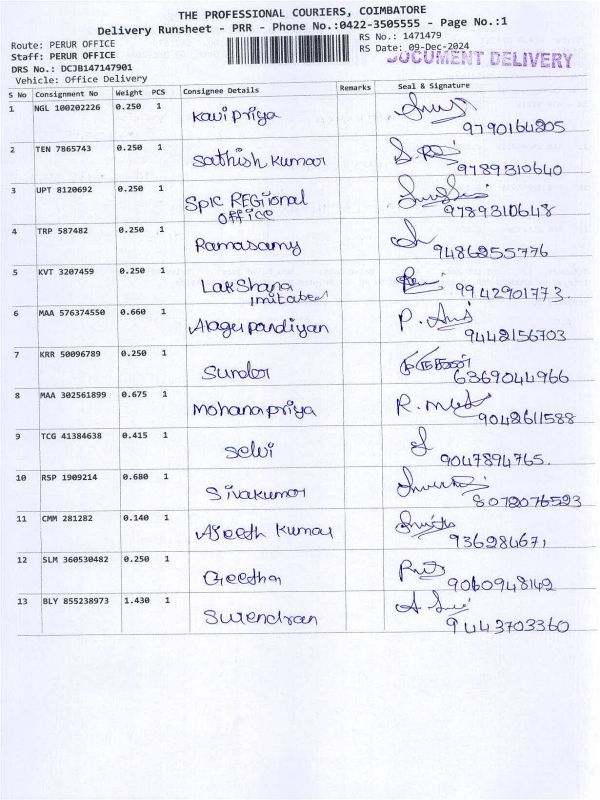 THE PROFESSIONAL COURIERS, COIMBATORE
Delivery Runsheet - PRR - Phone No.:0422-3505555 - Page No.:1
Route: PERUR OFFICE
Staff: PERUR OFFICE
DRS No.: DCJB147147901
Vehicle: Office Delivery
RS No.: 1471479
RS Date: 09-Dec-2024
DOCUMENT DELIVERY
S No Consignment No Weight PCS Consignee Details Remarks Seal & Signature
1 NGL 100202226 0.250 1 Kavi Priya
9790164205
2 TEN 7865743 0.250 1 Sathish Kumar
9789310640
3 UPT 8120692 0.250 1 Spic REGional
office
9789310648
4 TRP 587482 0.250 1 Ramasamy
9486255776
5 KVT 3207459 0.250 1 LakShana
imitabed
9942901773.
6 MAA 576374550 0.660 1 Alagupandiyan
9442156703
7 KRR 50096789 0.250 1 Sundor
6369044966
8 MAA 302561899 0.675 1 Mohanapriya
9042611588
9 TCG 41384638 0.415 1 Selvi
9047894765.
10 RSP 1909214 0.680 1 Sivakumar
8072076523
11 CMM 281282 0.140 1 Ajeeth Kumar
936284671
12 SLM 360530482 0.250 1 Geetha
9060948142
13 BLY 855238973 1.430 1 Surendran
9443703360